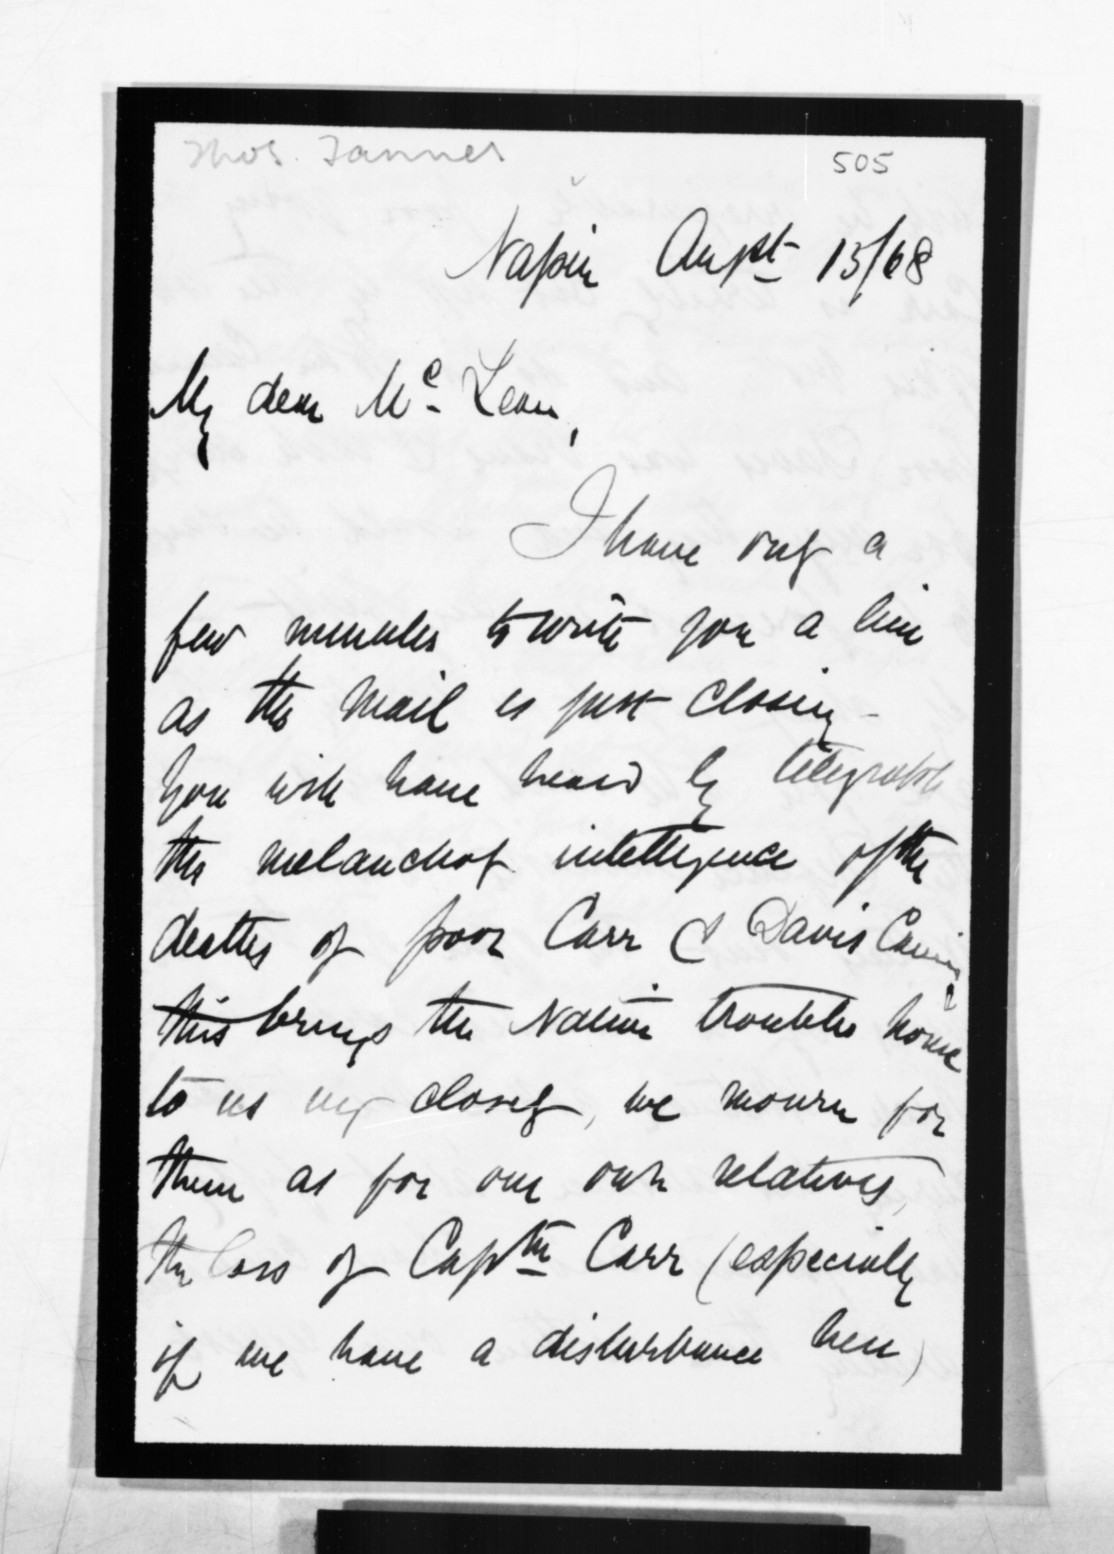 Thos. Tanner
505
Napier Augst 15/68
My dear Mc. Lean,
I have only a
few minutes to write you a line
as the Mail is just closing -
You will have heard by telegraph
the melancholy intelligence of the
deaths of poor Carr & Davis Canning
this brings the Native troubles home
to us very closely, we mourn for
them as for our own relatives,
the loss of Captn Carr (especially
if we have a disturbance here)